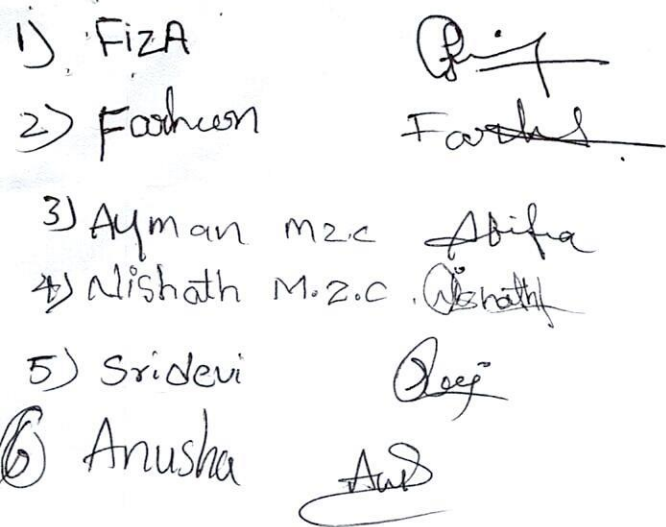 1) FizA
2) Farheen Farhs
3) Ayman mzc Atifa
4) Nishath M.Z.C. Nishath
5) Sridevi
6 Anusha Anu